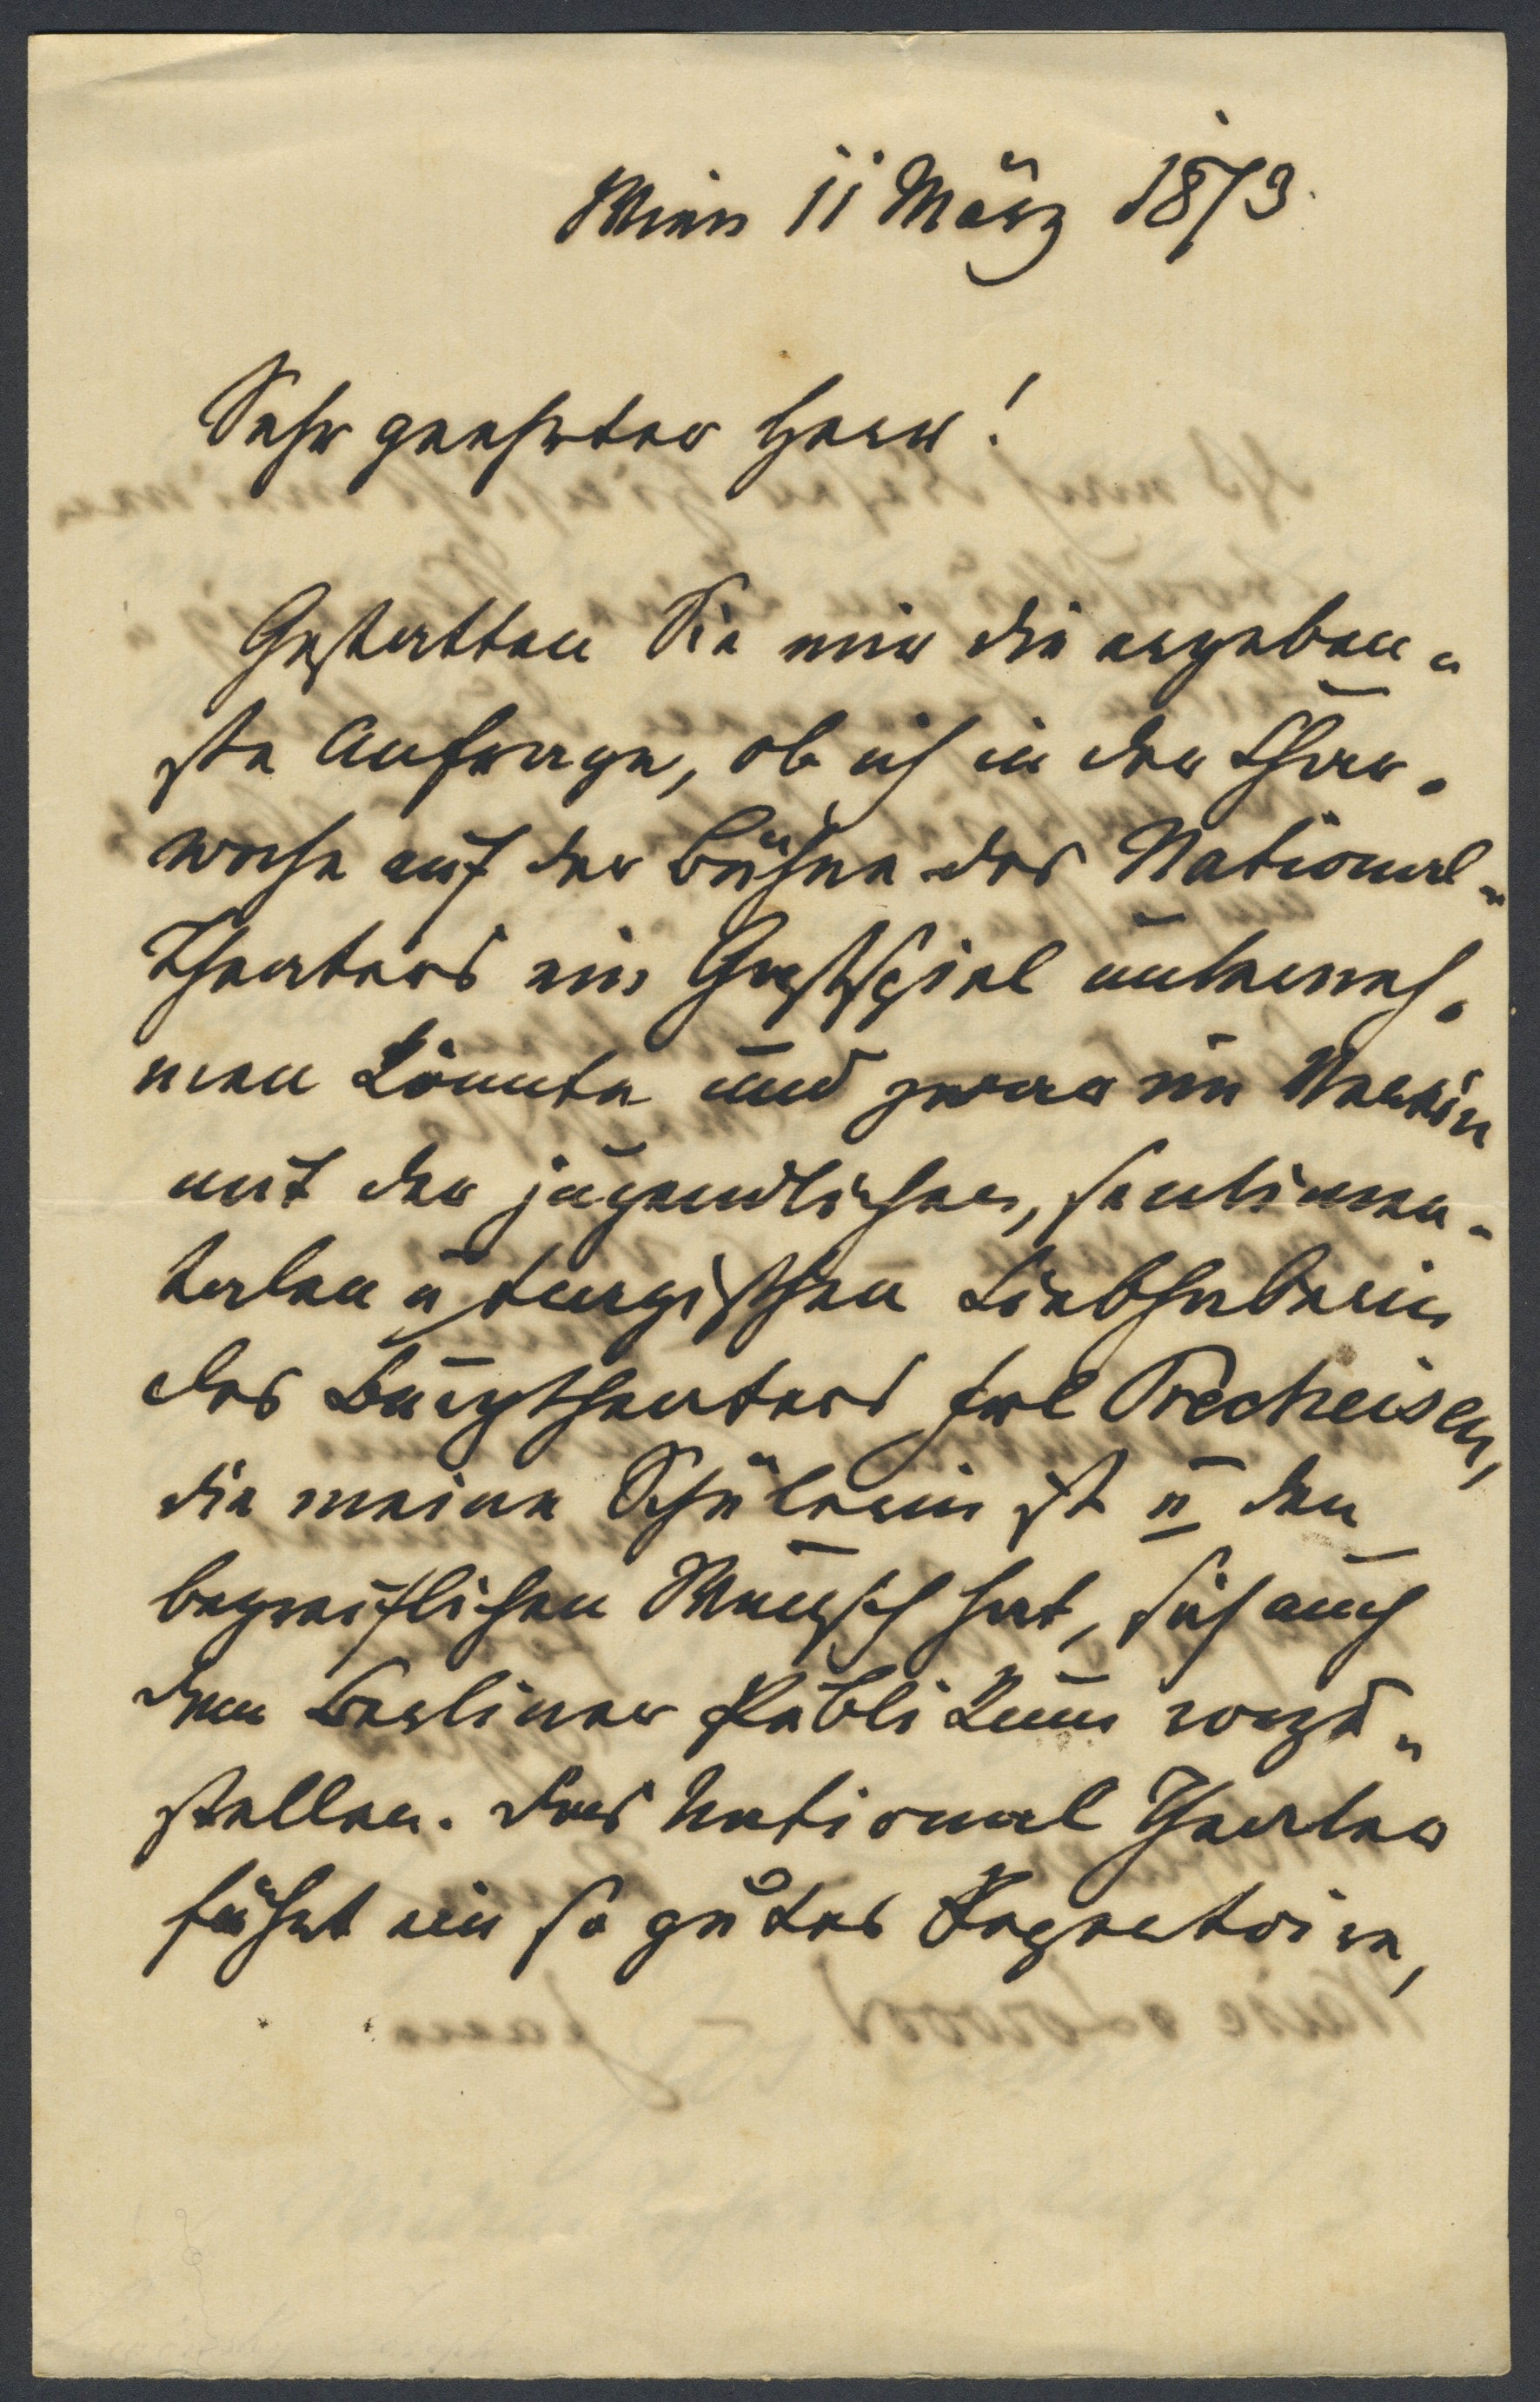 Wien 11 März 1873.
Sehr geehrter Herr!
Gestatten Sie mir die ergeben-
ste Anfrage, ob ich in der Char-
woche auf der Bühne des National-
Theaters ein Gastspiel unterneh-
men könnte und zwar im Verein
mit der jugendlichen, sentimen-
talen u tragischen Liebhaberin
des Burgtheaters Frl Precheisen,
die meine Schülerin ist u den
begreiflichen Wunsch hat, sich auch
dem Berliner Publikum vorzu-
stellen. Das National Theater
führt ein so gutes Repertoire,